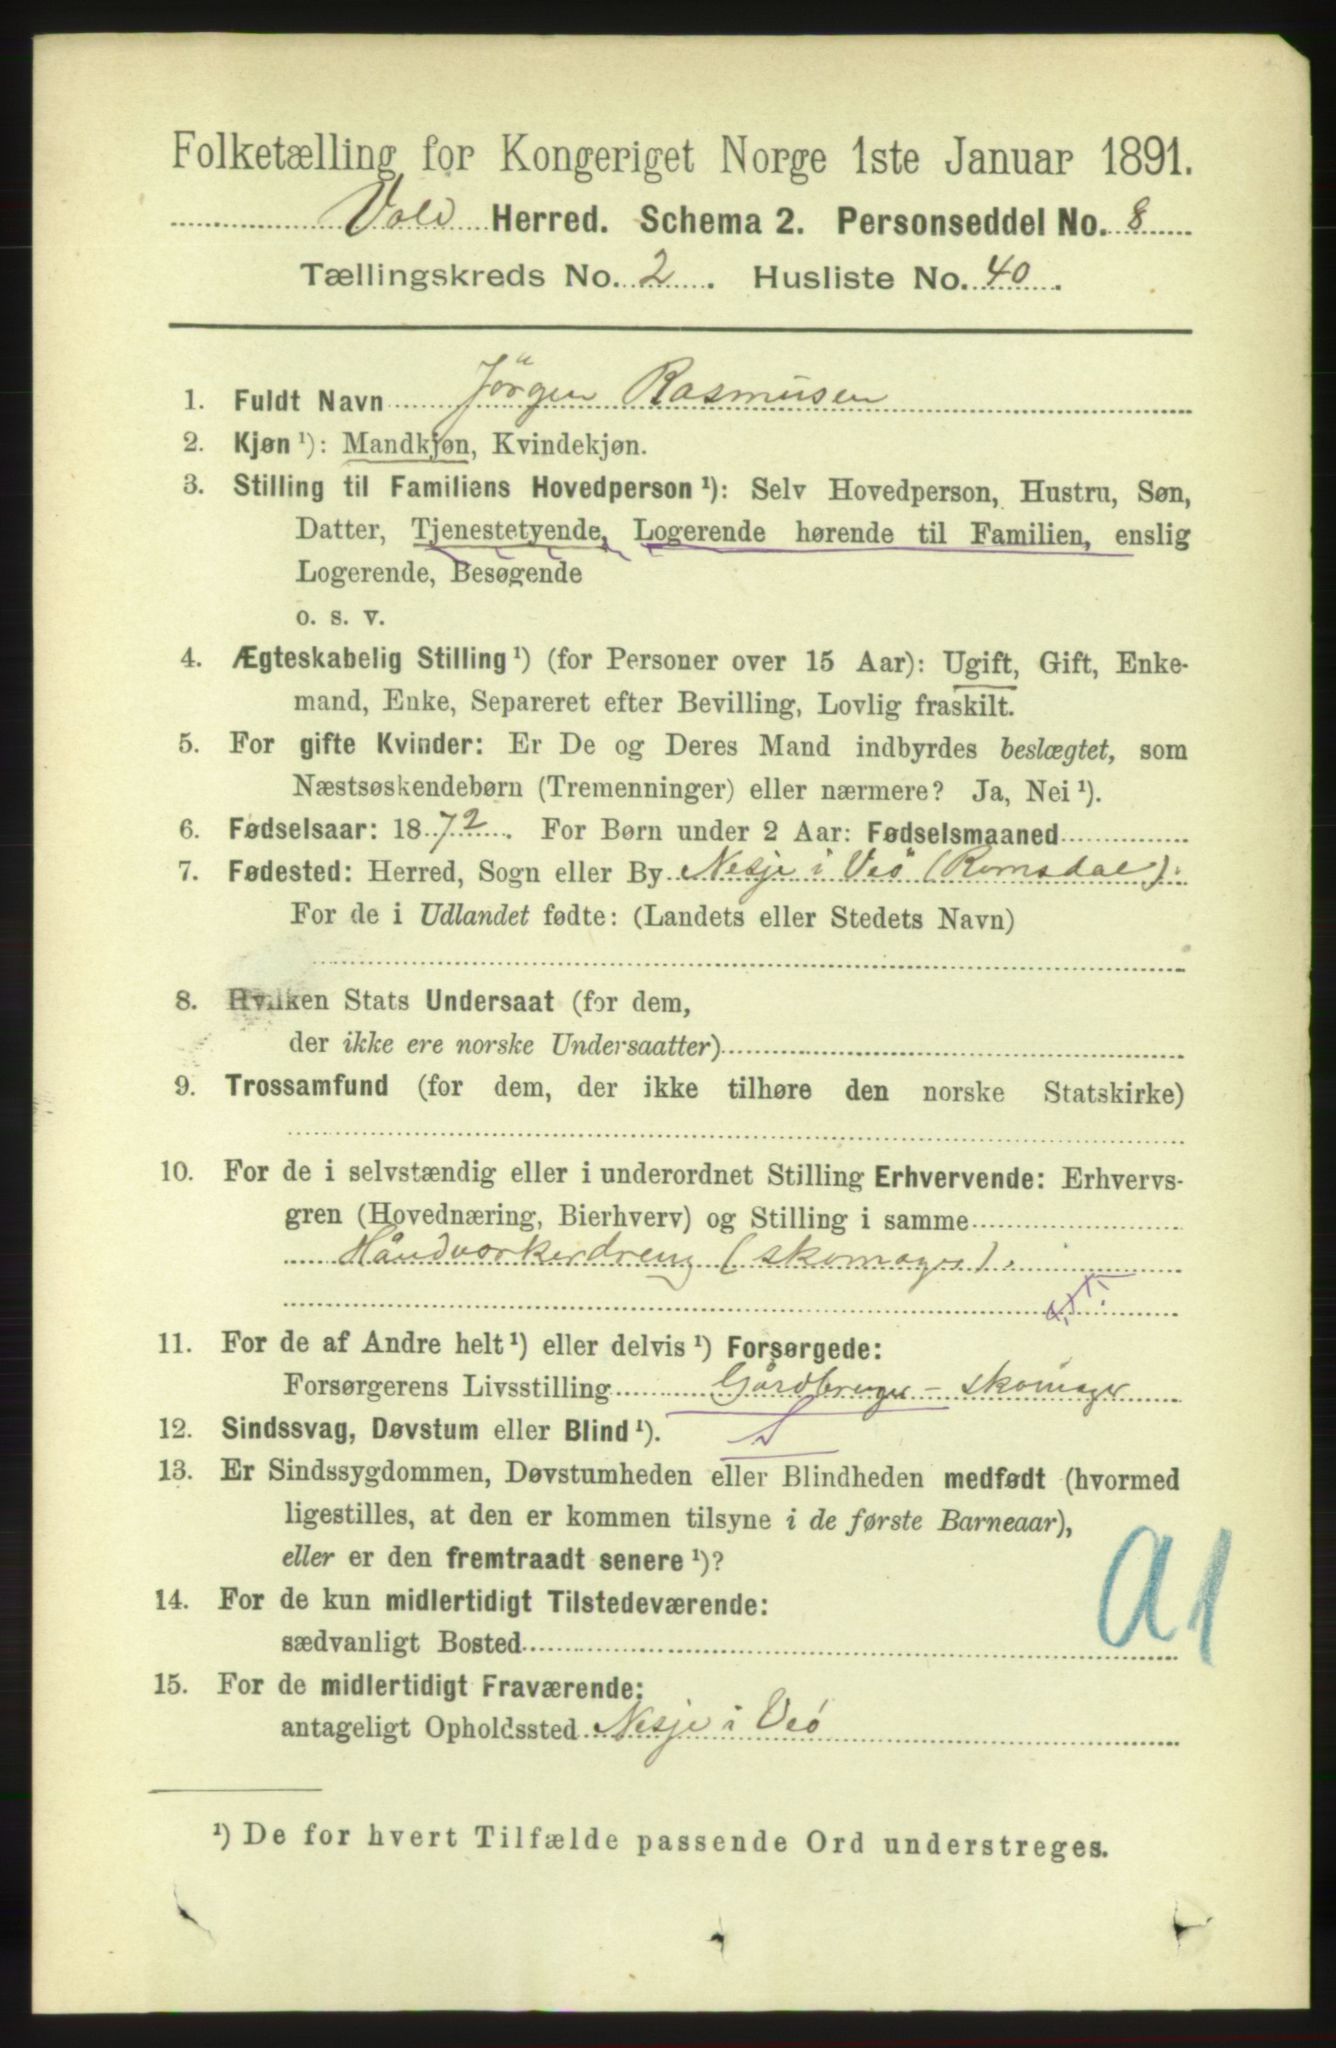 Folketælling for Kongeriget Norge 1ste Januar 1891.
Vold Herred. Schema 2. Personseddel No. 8
Tællingskreds No. 2. Husliste No. 40.
1. Fuldt Navn Jörgen Rasmusen
2. Kjøn ¹): Mandkjøn, Kvindekjøn.
3. Stilling til Familiens Hovedperson ¹): Selv Hovedperson, Hustru, Søn,
Datter, Tjenestetyende, Logerende hørende til Familien, enslig
Logerende, Besøgende
o. s. v.
4. Ægteskabelig Stilling ¹) (for Personer over 15 Aar): Ugift, Gift, Enke-
mand, Enke, Separeret efter Bevilling, Lovlig fraskilt.
5. For gifte Kvinder: Er De og Deres Mand indbyrdes beslægtet, som
Næstsøskendebørn (Tremenninger) eller nærmere? Ja, Nei ¹).
6. Fødselsaar: 1872. For Børn under 2 Aar: Fødselsmaaned
7. Fødested: Herred, Sogn eller By Nesje i Veö (Romsdal).
For de i Udlandet fødte: (Landets eller Stedets Navn)
8. Hvilken Stats Undersaat (for dem,
der ikke ere norske Undersaatter)
9. Trossamfund (for dem, der ikke tilhøre den norske Statskirke)
10. For de i selvstændig eller i underordnet Stilling Erhvervende: Erhvervs-
gren (Hovednæring, Bierhverv) og Stilling i samme
Håndværkerdreng (skomager).
11. For de af Andre helt ¹) eller delvis ¹) Forsørgede:
Forsørgerens Livsstilling Gårdbruger - skomager
12. Sindssvag, Døvstum eller Blind ¹). S
13. Er Sindssygdommen, Døvstumheden eller Blindheden medfødt (hvormed
ligestilles, at den er kommen tilsyne i de første Barneaar),
eller er den fremtraadt senere ¹)?
14. For de kun midlertidigt Tilstedeværende:
sædvanligt Bosted
A1
15. For de midlertidigt Fraværende:
antageligt Opholdssted Nesje i Veö
¹) De for hvert Tilfælde passende Ord understreges.